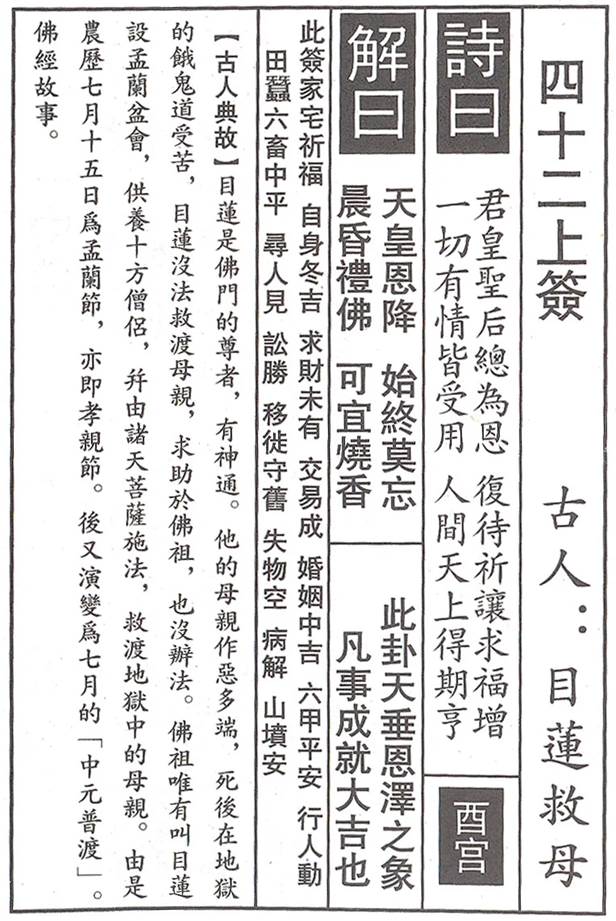 四十二上簽 古人：目蓮救母
詩曰
君皇聖后總為恩 復待祈讓求福增
一切有情皆受用 人間天上得期亨
酉宫
解曰
天皇恩降 始終莫忘
晨昏禮佛 可宜燒香
此卦天垂恩澤之象
凡事成就大吉也
此簽家宅祈福 自身冬吉 求財未有 交易成 婚姻中吉 六甲平安 行人動
田蠶六畜中平 尋人見 訟勝 移徙守舊 失物空 病解 山墳安
【古人典故】目蓮是佛門的尊者，有神通。他的母親作惡多端，死後在地獄
的餓鬼道受苦，目蓮沒法救渡母親，求助於佛祖，也沒辦法。佛祖唯有叫目蓮
設孟蘭盆會，供養十方僧侶，幷由諸天菩薩施法，救渡地獄中的母親。由是
農歷七月十五日爲孟蘭節，亦即孝親節。後又演變爲七月的「中元普渡」。
佛經故事。